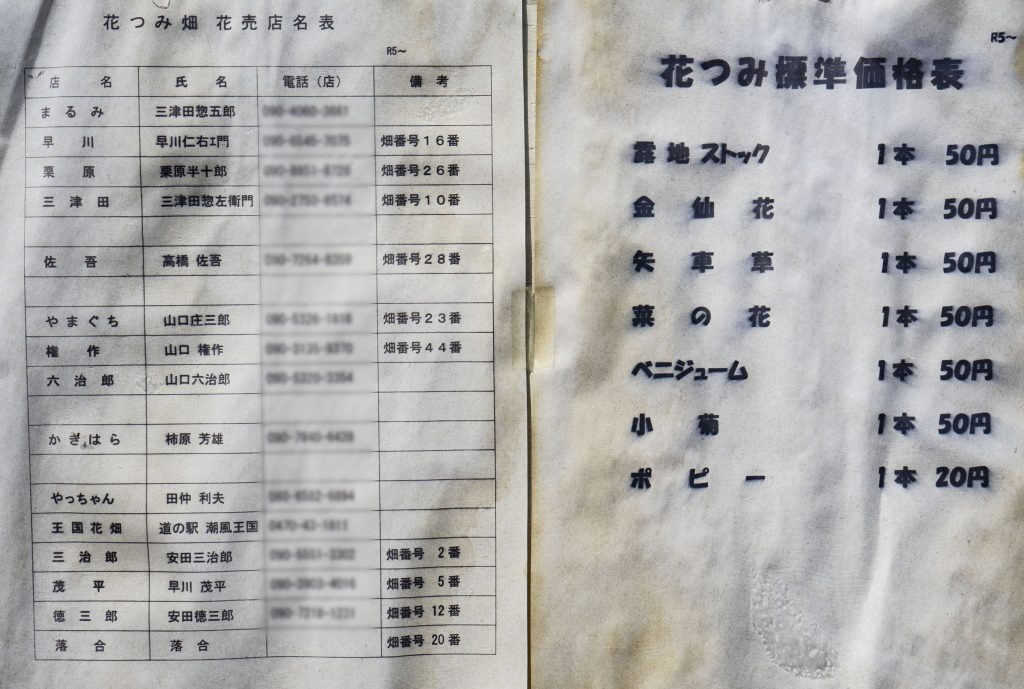 花つみ畑 花売店名表
R5～
店名 氏名 電話（店） 備考
まるみ 三津田惣五郎
早川 早川仁右ｴ門 畑番号16番
栗原 栗原半十郎 畑番号26番
三津田 三津田惣左衛門 畑番号10番
佐吾 高橋 佐吾 畑番号28番
やまぐち 山口庄三郎 畑番号23番
権作 山口 権作 畑番号44番
六治郎 山口六治郎
かぎはら 柿原 芳雄
やっちゃん 田仲 利夫
王国花畑 道の駅 潮風王国
三治郎 安田三治郎 畑番号 2番
茂平 早川 茂平 畑番号 5番
徳三郎 安田徳三郎 畑番号 12番
落合 落合 畑番号 20番
R5～
花つみ標準価格表
露地ストック 1本 50円
金仙花 1本 50円
矢車草 1本 50円
菜の花 1本 50円
ベニジューム 1本 50円
小菊 1本 50円
ポピー 1本 20円